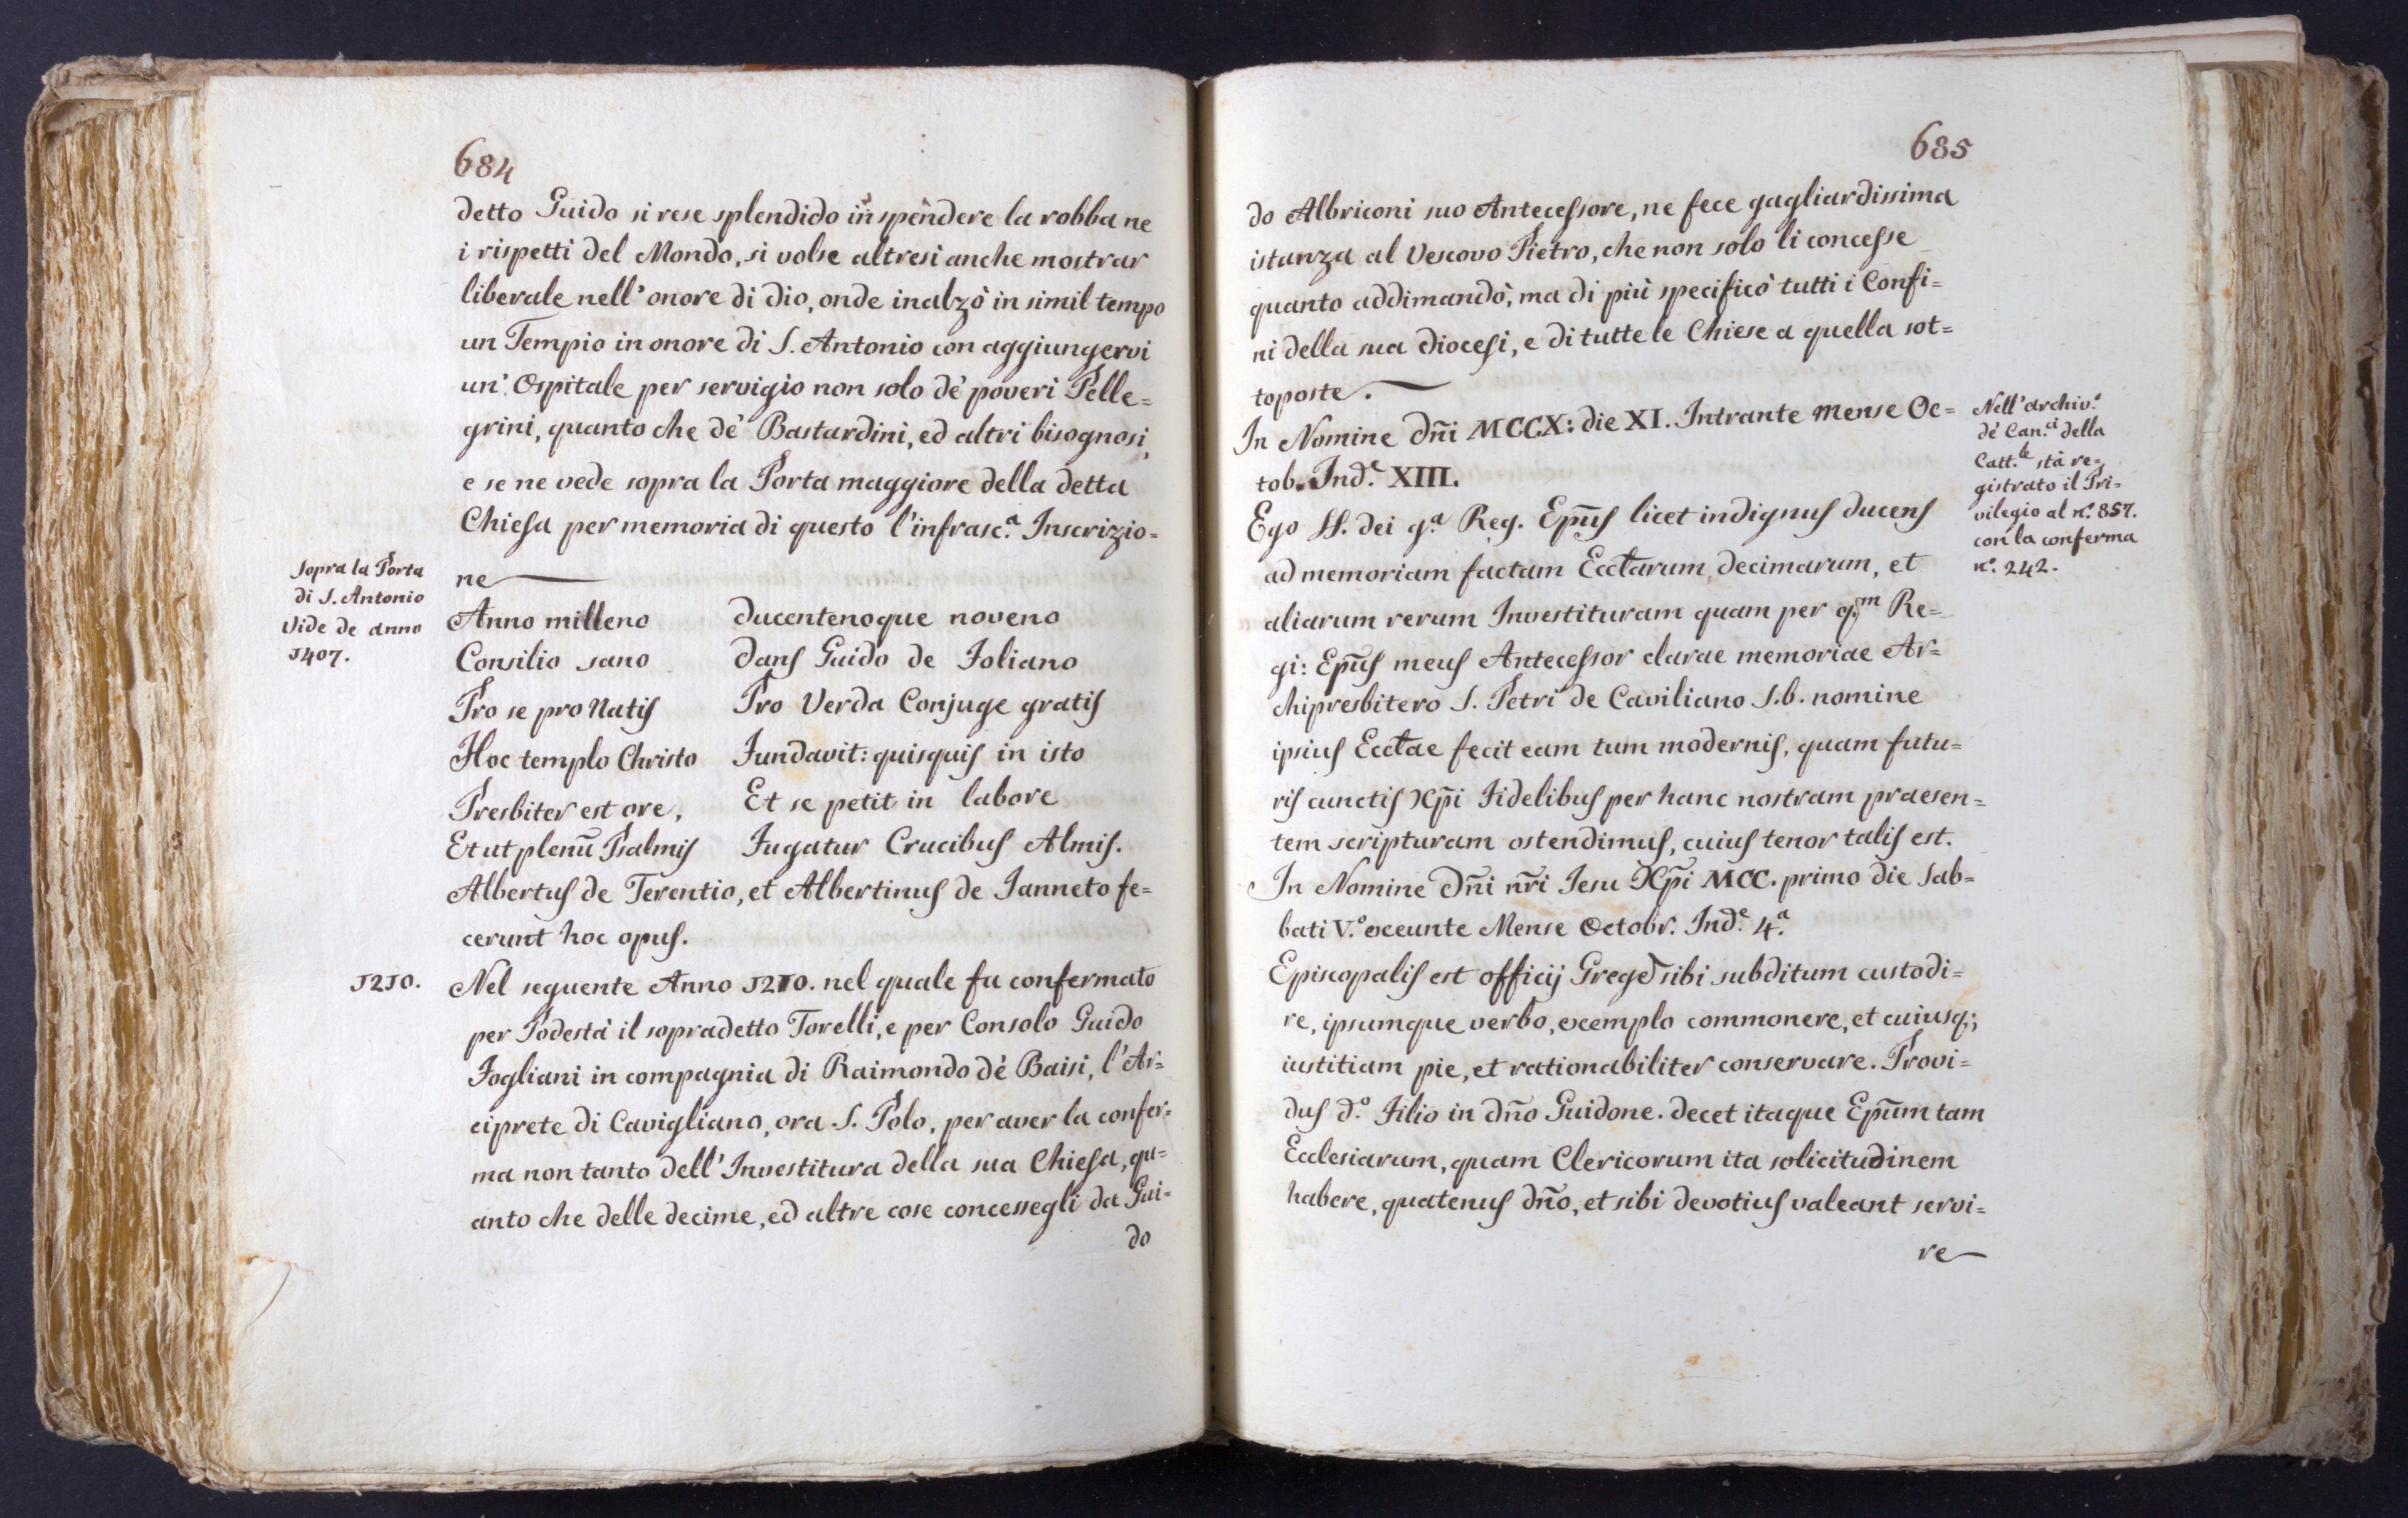 684
detto Guido si rese splendido in spendere la robba ne
i rispetti del Mondo, si volse altresi anche mostrar
liberale nell' onore di Dio, onde inalzò in simil tempo
un Tempio in onore di S. Antonio con aggiungervi
un' Ospitale per servigio non solo dè poveri Pelle=
grini, quanto che dè Bastardini, ed altri bisognosi,
e se ne vede sopra la Porta maggiore della detta
Chiesa per memoria di questo l'infrasc.ª Inscrizio=
ne
Sopra la Porta
di S. Antonio
Vide de anno
1407.
Anno milleno ducentenoque noveno
Consilio sano Dans Guido de Foliano
Pro se pro Natis Pro Verda Conjuge gratis
Hoc templo Christo Fundavit: quisquis in isto
Presbiter est ore, Et se petit in labore
Et ut plenũ Psalmis Fugatur Crucibus Almis.
Albertus de Terentio, et Albertinus de Janneto fe=
cerunt hoc opus.
1210. Nel seguente Anno 1210. nel quale fu confermato
per Podestà il sopradetto Torelli, e per Consolo Guido
Fogliani in compagnia di Raimondo dè Baisi, l'Ar=
ciprete di Cavigliano, ora S. Polo, per aver la confer=
ma non tanto dell' Investitura della sua Chiesa, qu=
anto che delle decime, ed altre cose concessegli da Gui=
do
685
do Albriconi suo Antecessore, ne fece gagliardissima
istanza al Vescovo Pietro, che non solo li concesse
quanto addimandò, ma di più specificò tutti i Confi=
ni della sua Diocesi, e di tutte le Chiese a quella sot=
toposte.
In Nomine Dñi MCCX: die XI. Intrante Mense Oc=
tob. Ind.e XIII.
Nell' archiv.º
dè Can.ci della
Catt.le stà re=
gistrato il Pri=
vilegio al nº. 857.
con la conferma
nº. 242.
Ego H. dei g.ª Reg. Ep̃us licet indignus ducens
ad memoriam factam Ecctarum, decimarum, et
aliarum rerum Investituram quam per q.m Re=
gi: Ep̃us meus Antecessor clarae memoriae Ar=
chipresbitero S. Petri de Caviliano S.b. nomine
ipsius Ecctae fecit eam tum modernis, quam futu=
ris cunctis Xp̃i Fidelibus per hanc nostram praesen=
tem scripturam ostendimus, cuius tenor talis est.
In Nomine Dñi nr̃i Jesu Xp̃i MCC. primo die Sab=
bati V.º exeunte Mense Octobr. Ind.e 4.ª
Episcopalis est officij Grege sibi subditum custodi=
re, ipsumque verbo, exemplo commonere, et cuiusq;
iustitiam pie, et rationabiliter conservare. Provi=
dus d.º Filio in Dño Guidone. decet itaque Ep̃um tam
Ecclesiarum, quam Clericorum ita solicitudinem
habere, quatenus Dño, et sibi devotius valeant servi=
re